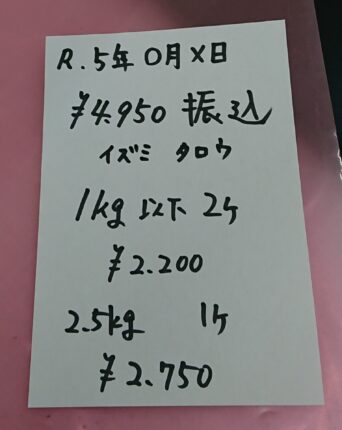 R.5年〇月×日
¥4.950 振込
イズミ タロウ
1kg 以下 2ケ
¥2.200
2.5kg 1ケ
¥2.750